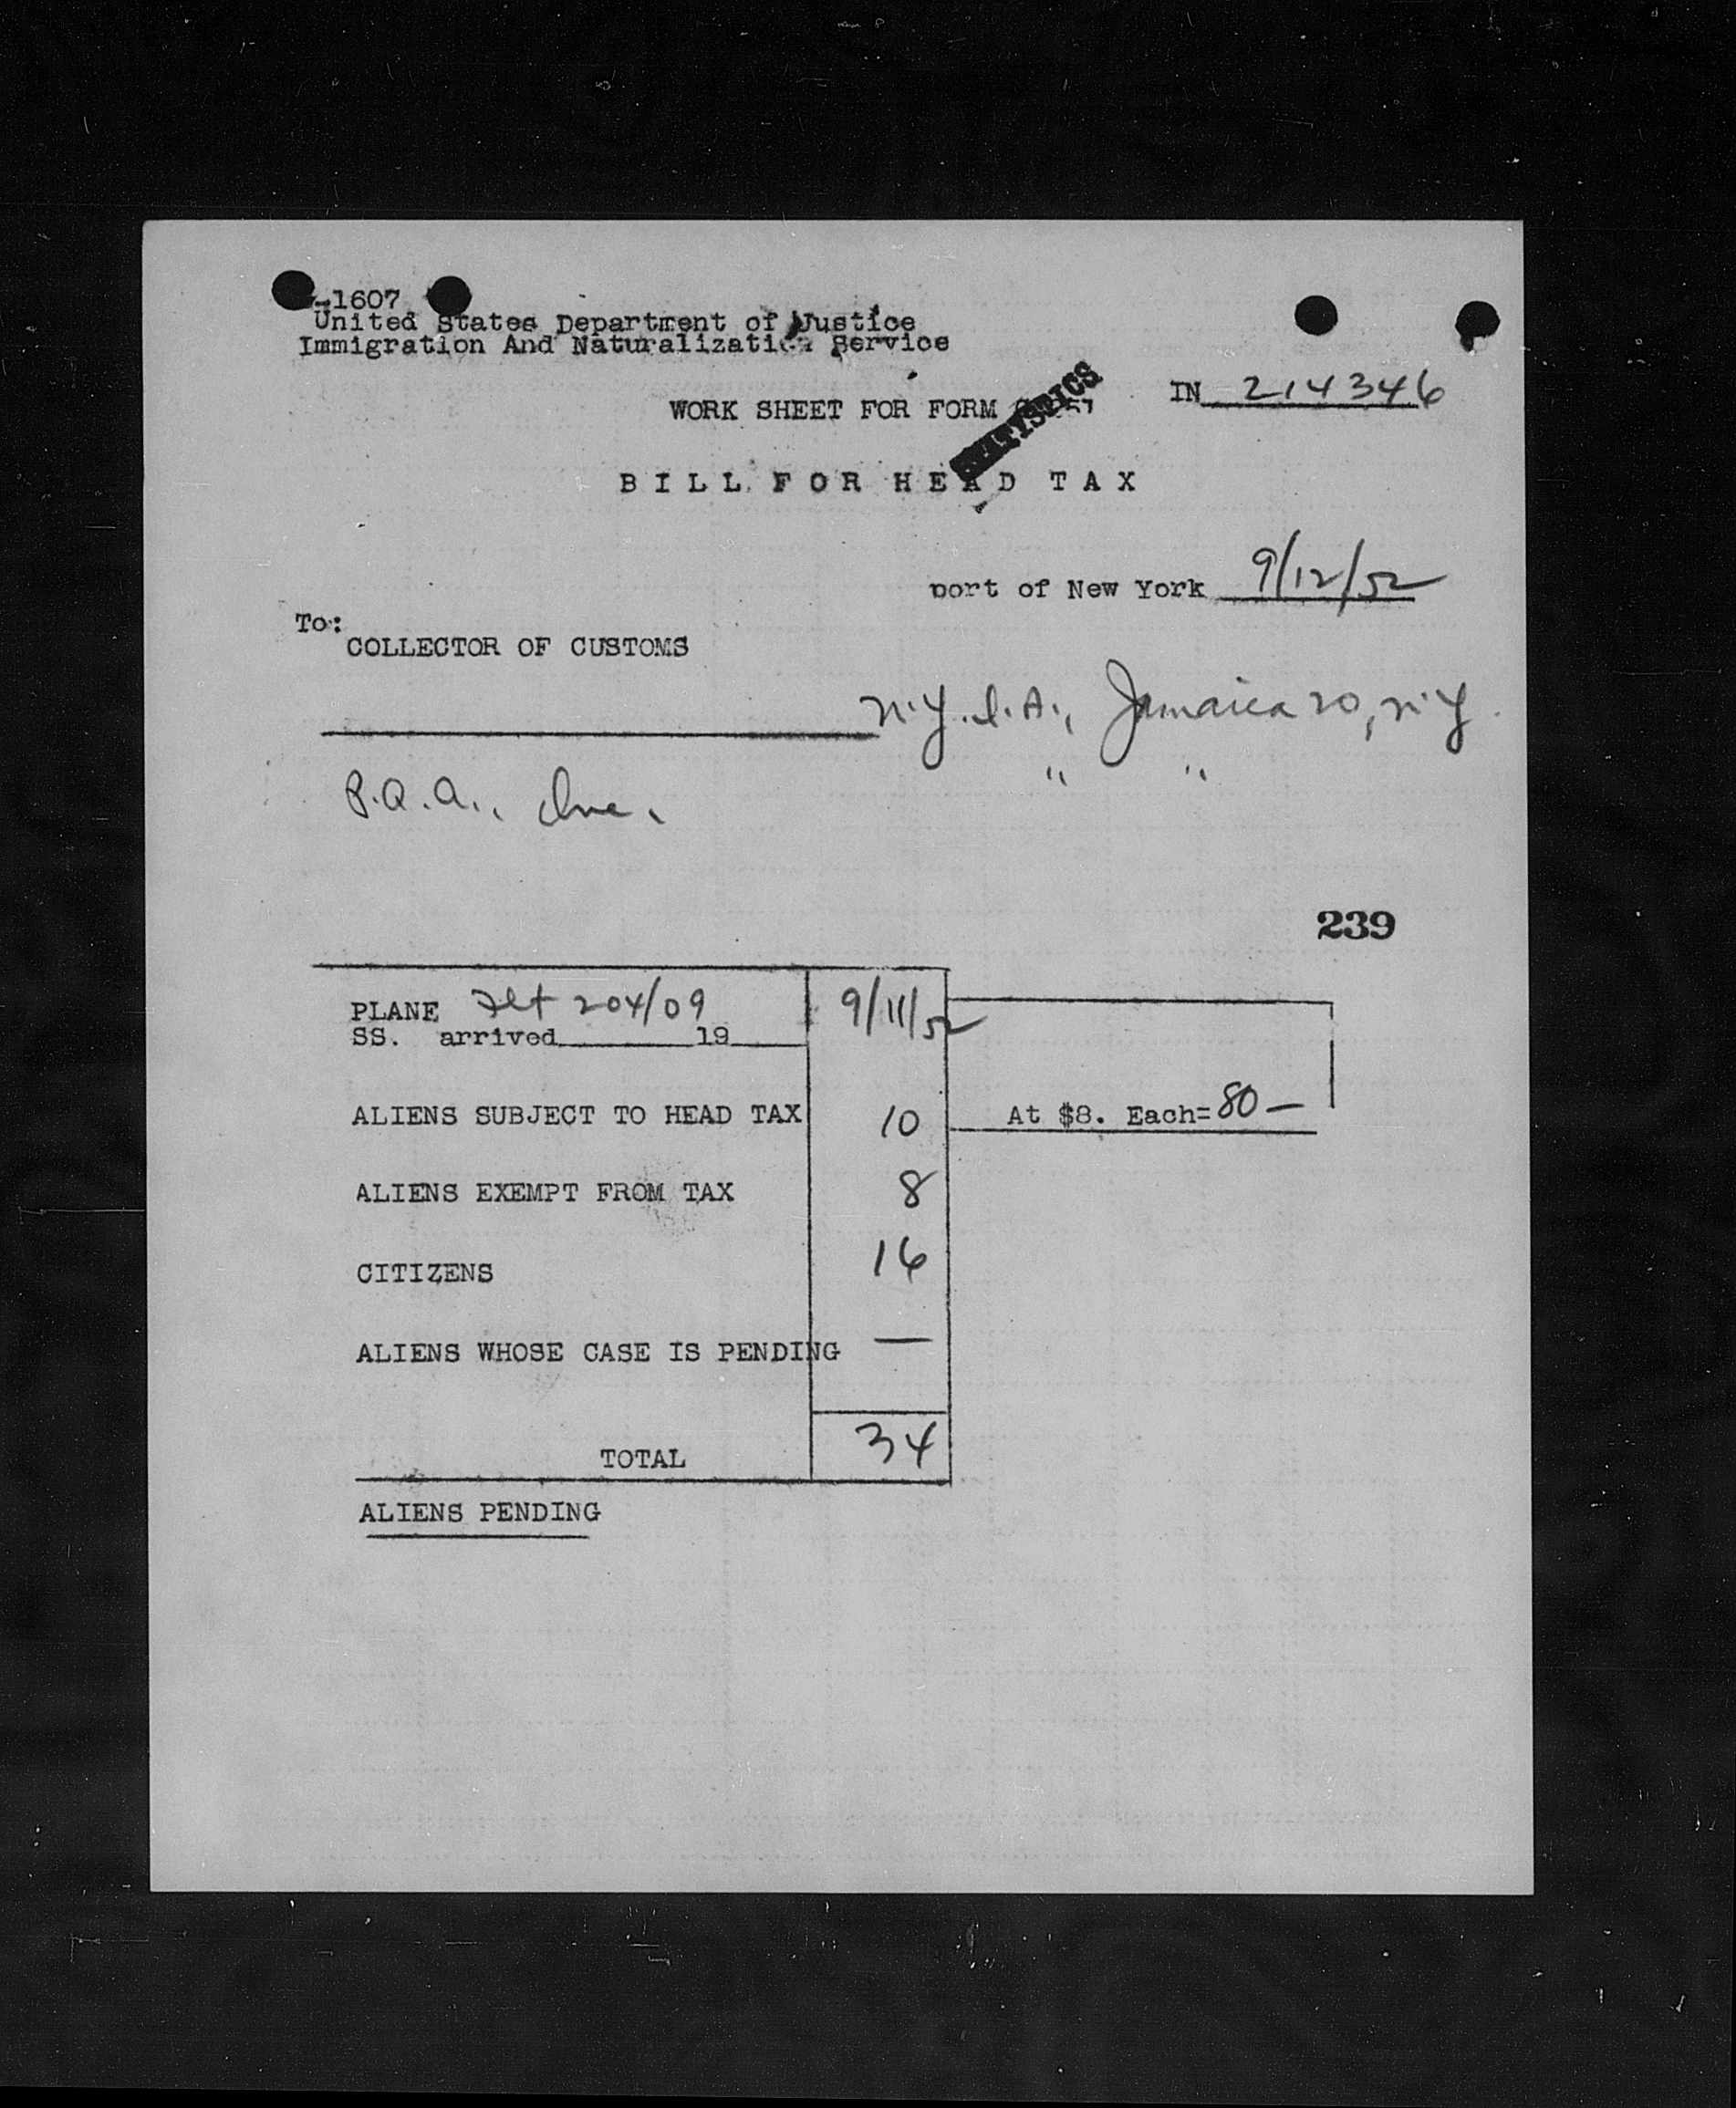 -1607
United States Department of Justice
Immigration And Naturalization Service
IN 214346
WORK SHEET FOR FORM
STATISTICS
BILL FOR HEAD TAX
port of New York 9/12/52
To:
COLLECTOR OF CUSTOMS
N.Y.I.A., Jamaica 20, N.Y.
P.A.A., Inc. " "
239
PLANE Flt 204/09 9/11/52
SS. arrived 19
ALIENS SUBJECT TO HEAD TAX 10 At $8. Each= 80 —
ALIENS EXEMPT FROM TAX 8
CITIZENS 16
ALIENS WHOSE CASE IS PENDING —
TOTAL 34
ALIENS PENDING